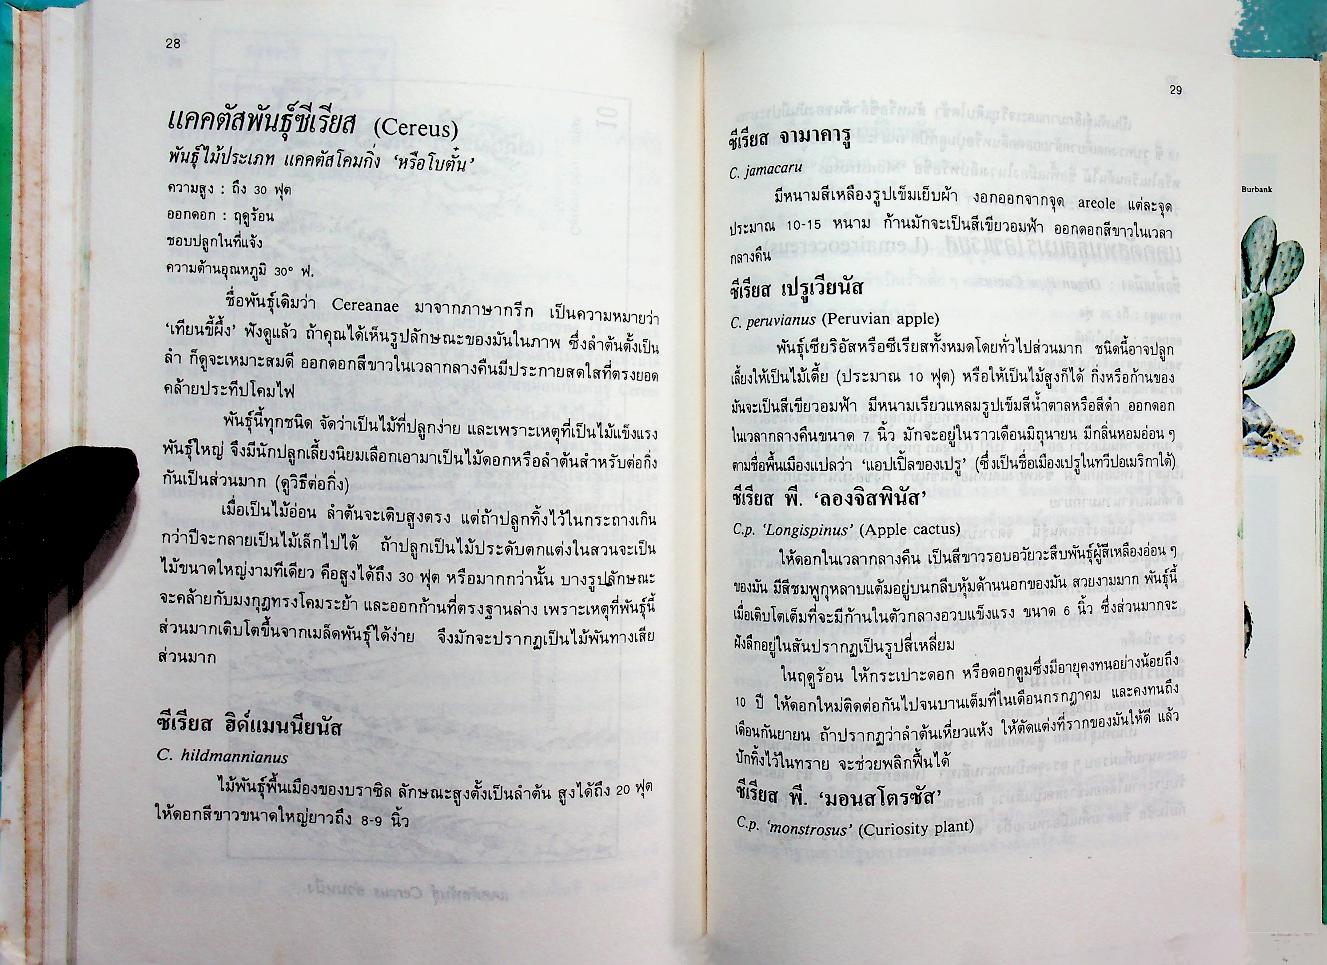 28
แคคตัสพันธุ์ซีเรียส (Cereus)
พันธุ์ไม้ประเภท แคคตัสโคมกิ่ง ‘หรือโบตั๋น’
ความสูง : ถึง 30 ฟุต
ออกดอก : ฤดูร้อน
ชอบปลูกในที่แจ้ง
ความต้านอุณหภูมิ 30° ฟ.
ชื่อพันธุ์เดิมว่า Cereanae มาจากภาษากรีก เป็นความหมายว่า
‘เทียนขี้ผึ้ง’ ฟังดูแล้ว ถ้าคุณได้เห็นรูปลักษณะของมันในภาพ ซึ่งลำต้นตั้งเป็น
ลำ ก็ดูจะเหมาะสมดี ออกดอกสีขาวในเวลากลางคืนมีประกายสดใสที่ตรงยอด
คล้ายประทีปโคมไฟ
พันธุ์นี้ทุกชนิด จัดว่าเป็นไม้ที่ปลูกง่าย และเพราะเหตุที่เป็นไม้แข็งแรง
พันธุ์ใหญ่ จึงมีนักปลูกเลี้ยงนิยมเลือกเอามาเป็นไม้ดอกหรือลำต้นสำหรับต่อกิ่ง
กันเป็นส่วนมาก (ดูวิธีต่อกิ่ง)
เมื่อเป็นไม้อ่อน ลำต้นจะเติบสูงตรง แต่ถ้าปลูกทิ้งไว้ในกระถางเกิน
กว่าปีจะกลายเป็นไม้เล็กไปได้ ถ้าปลูกเป็นไม้ประดับตกแต่งในสวนจะเป็น
ไม้ขนาดใหญ่งามทีเดียว คือสูงได้ถึง 30 ฟุต หรือมากกว่านั้น บางรูปลักษณะ
จะคล้ายกับมงกุฎทรงโคมระย้า และออกก้านที่ตรงฐานล่าง เพราะเหตุที่พันธุ์นี้
ส่วนมากเติบโตขึ้นจากเมล็ดพันธุ์ได้ง่าย จึงมักจะปรากฏเป็นไม้พันทางเสีย
ส่วนมาก
ซีเรียส ฮิด์แมนนียนัส
C. hildmannianus
ไม้พันธุ์พื้นเมืองของบราซิล ลักษณะสูงตั้งเป็นลำต้น สูงได้ถึง 20 ฟุต
ให้ดอกสีขาวขนาดใหญ่ยาวถึง 8-9 นิ้ว
29
ซีเรียส จามาคารู
C. jamacaru
มีหนามสีเหลืองรูปเข็มเย็บผ้า งอกออกจากจุด areole แต่ละจุด
ประมาณ 10-15 หนาม ก้านมักจะเป็นสีเขียวอมฟ้า ออกดอกสีขาวในเวลา
กลางคืน
ซีเรียส เปรูเวียนัส
C. peruvianus (Peruvian apple)
พันธุ์เซียริอัสหรือซีเรียสทั้งหมดโดยทั่วไปส่วนมาก ชนิดนี้อาจปลูก
เลี้ยงให้เป็นไม้เตี้ย (ประมาณ 10 ฟุต) หรือให้เป็นไม้สูงก็ได้ กิ่งหรือก้านของ
มันจะเป็นสีเขียวอมฟ้า มีหนามเรียวแหลมรูปเข็มสีน้ำตาลหรือสีดำ ออกดอก
ในเวลากลางคืนขนาด 7 นิ้ว มักจะอยู่ในราวเดือนมิถุนายน มีกลิ่นหอมอ่อน ๆ
ตามชื่อพื้นเมืองแปลว่า ‘แอปเปิ้ลของเปรู’ (ซึ่งเป็นชื่อเมืองเปรูในทวีปอเมริกาใต้)
ซีเรียส พี. ‘ลองจิสพินัส’
C.p. ‘Longispinus’ (Apple cactus)
ให้ดอกในเวลากลางคืน เป็นสีขาวรอบอวัยวะสืบพันธุ์ผู้สีเหลืองอ่อน ๆ
ของมัน มีสีชมพูกุหลาบแต้มอยู่บนกลีบหุ้มด้านนอกของมัน สวยงามมาก พันธุ์นี้
เมื่อเติบโตเต็มที่จะมีก้านในตัวกลางอวบแข็งแรง ขนาด 6 นิ้ว ซึ่งส่วนมากจะ
ฝังลึกอยู่ในสันปรากฏเป็นรูปสี่เหลี่ยม
ในฤดูร้อน ให้กระเปาะดอก หรือดอกตูมซึ่งมีอายุคงทนอย่างน้อยถึง
10 ปี ให้ดอกใหม่ติดต่อกันไปจนบานเต็มที่ในเดือนกรกฎาคม และคงทนถึง
เดือนกันยายน ถ้าปรากฏว่าลำต้นเหี่ยวแห้ง ให้ตัดแต่งที่รากของมันให้ดี แล้ว
ปักทิ้งไว้ในทราย จะช่วยพลิกฟื้นได้
ซีเรียส พี. ‘มอนสโตรซัส’
C.p. ‘monstrosus’ (Curiosity plant)
Burbank